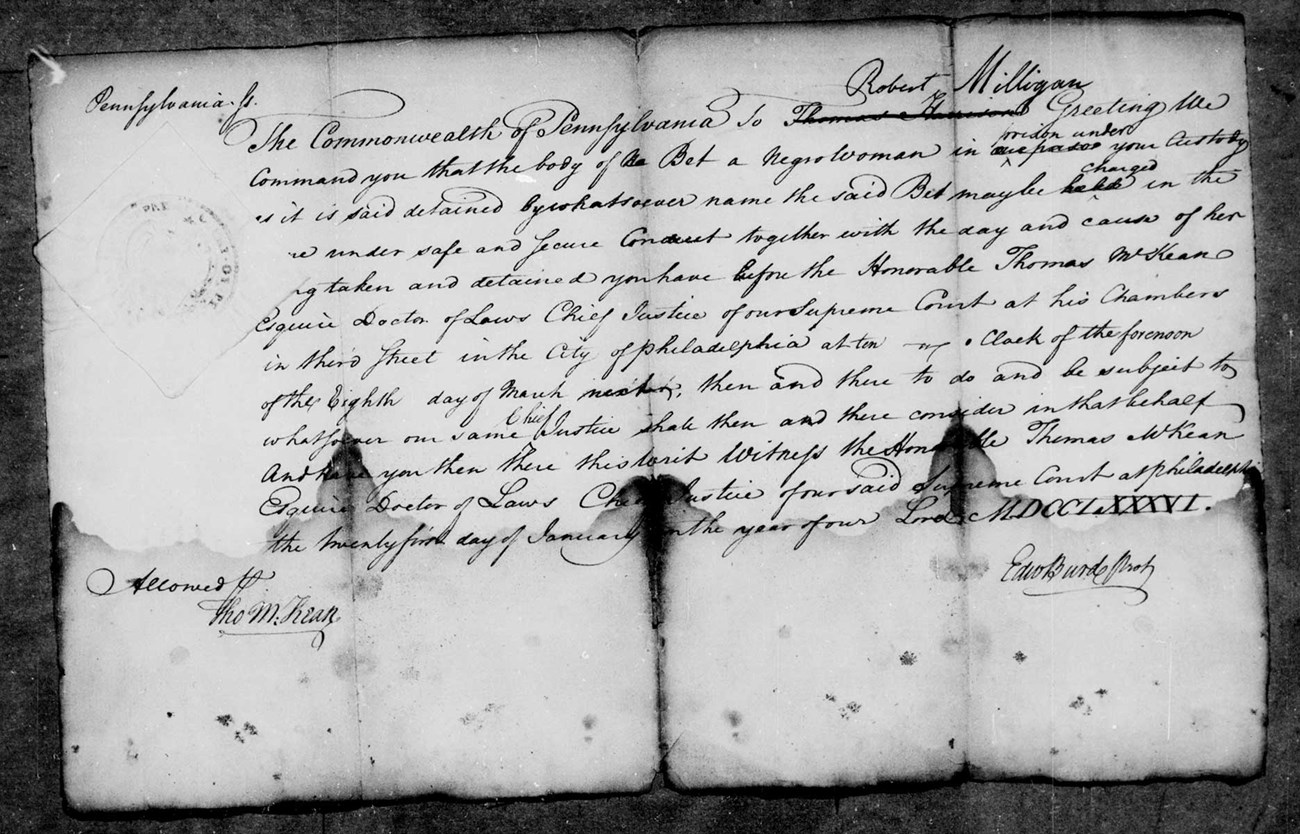 Pennsylvania ss.
Robert Milligan
The Commonwealth of Pennsylvania To Thomas Harrison Greeting We
prison under
Command you that the body of Bet a Negro Woman in your Custody
charged
as it is said detained by whatsoever name the said Bet may be held in the
re under safe and secure Conduct together with the day and cause of her
ng taken and detained you have before the Honorable Thomas McKean
Esquire Doctor of Laws Chief Justice of our Supreme Court at his Chambers
in third Street in the City of Philadelphia at ten o Clock of the forenoon
of the Eighth day of March then and there to do and be subject to
Chief
whatsoever our same Justice shall then and there consider in that behalf
And have you then there this writ Witness the Honorable Thomas McKean
Esquire Doctor of Laws Chief Justice of our said Supreme Court at Philadelphi
the twenty first day of January in the year of our Lord MDCCLXXXVI.
Allowed
Tho M:Kean
Edwd Burd Prot